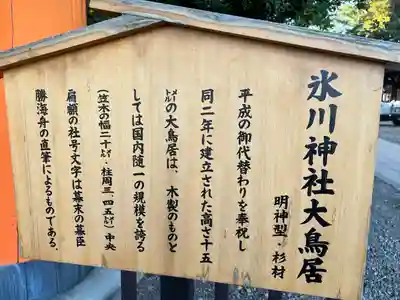 氷川神社大鳥居
明神型・杉材
平成の御代替わりを奉祝し
同二年に建立された高さ十五
㍍の大鳥居は、木製のものと
しては国内随一の規模を誇る
(笠木の幅二十㍍・柱周三・四五㍍)中央
肩額の社号文字は幕末の幕臣
勝海舟の直筆によるものである。